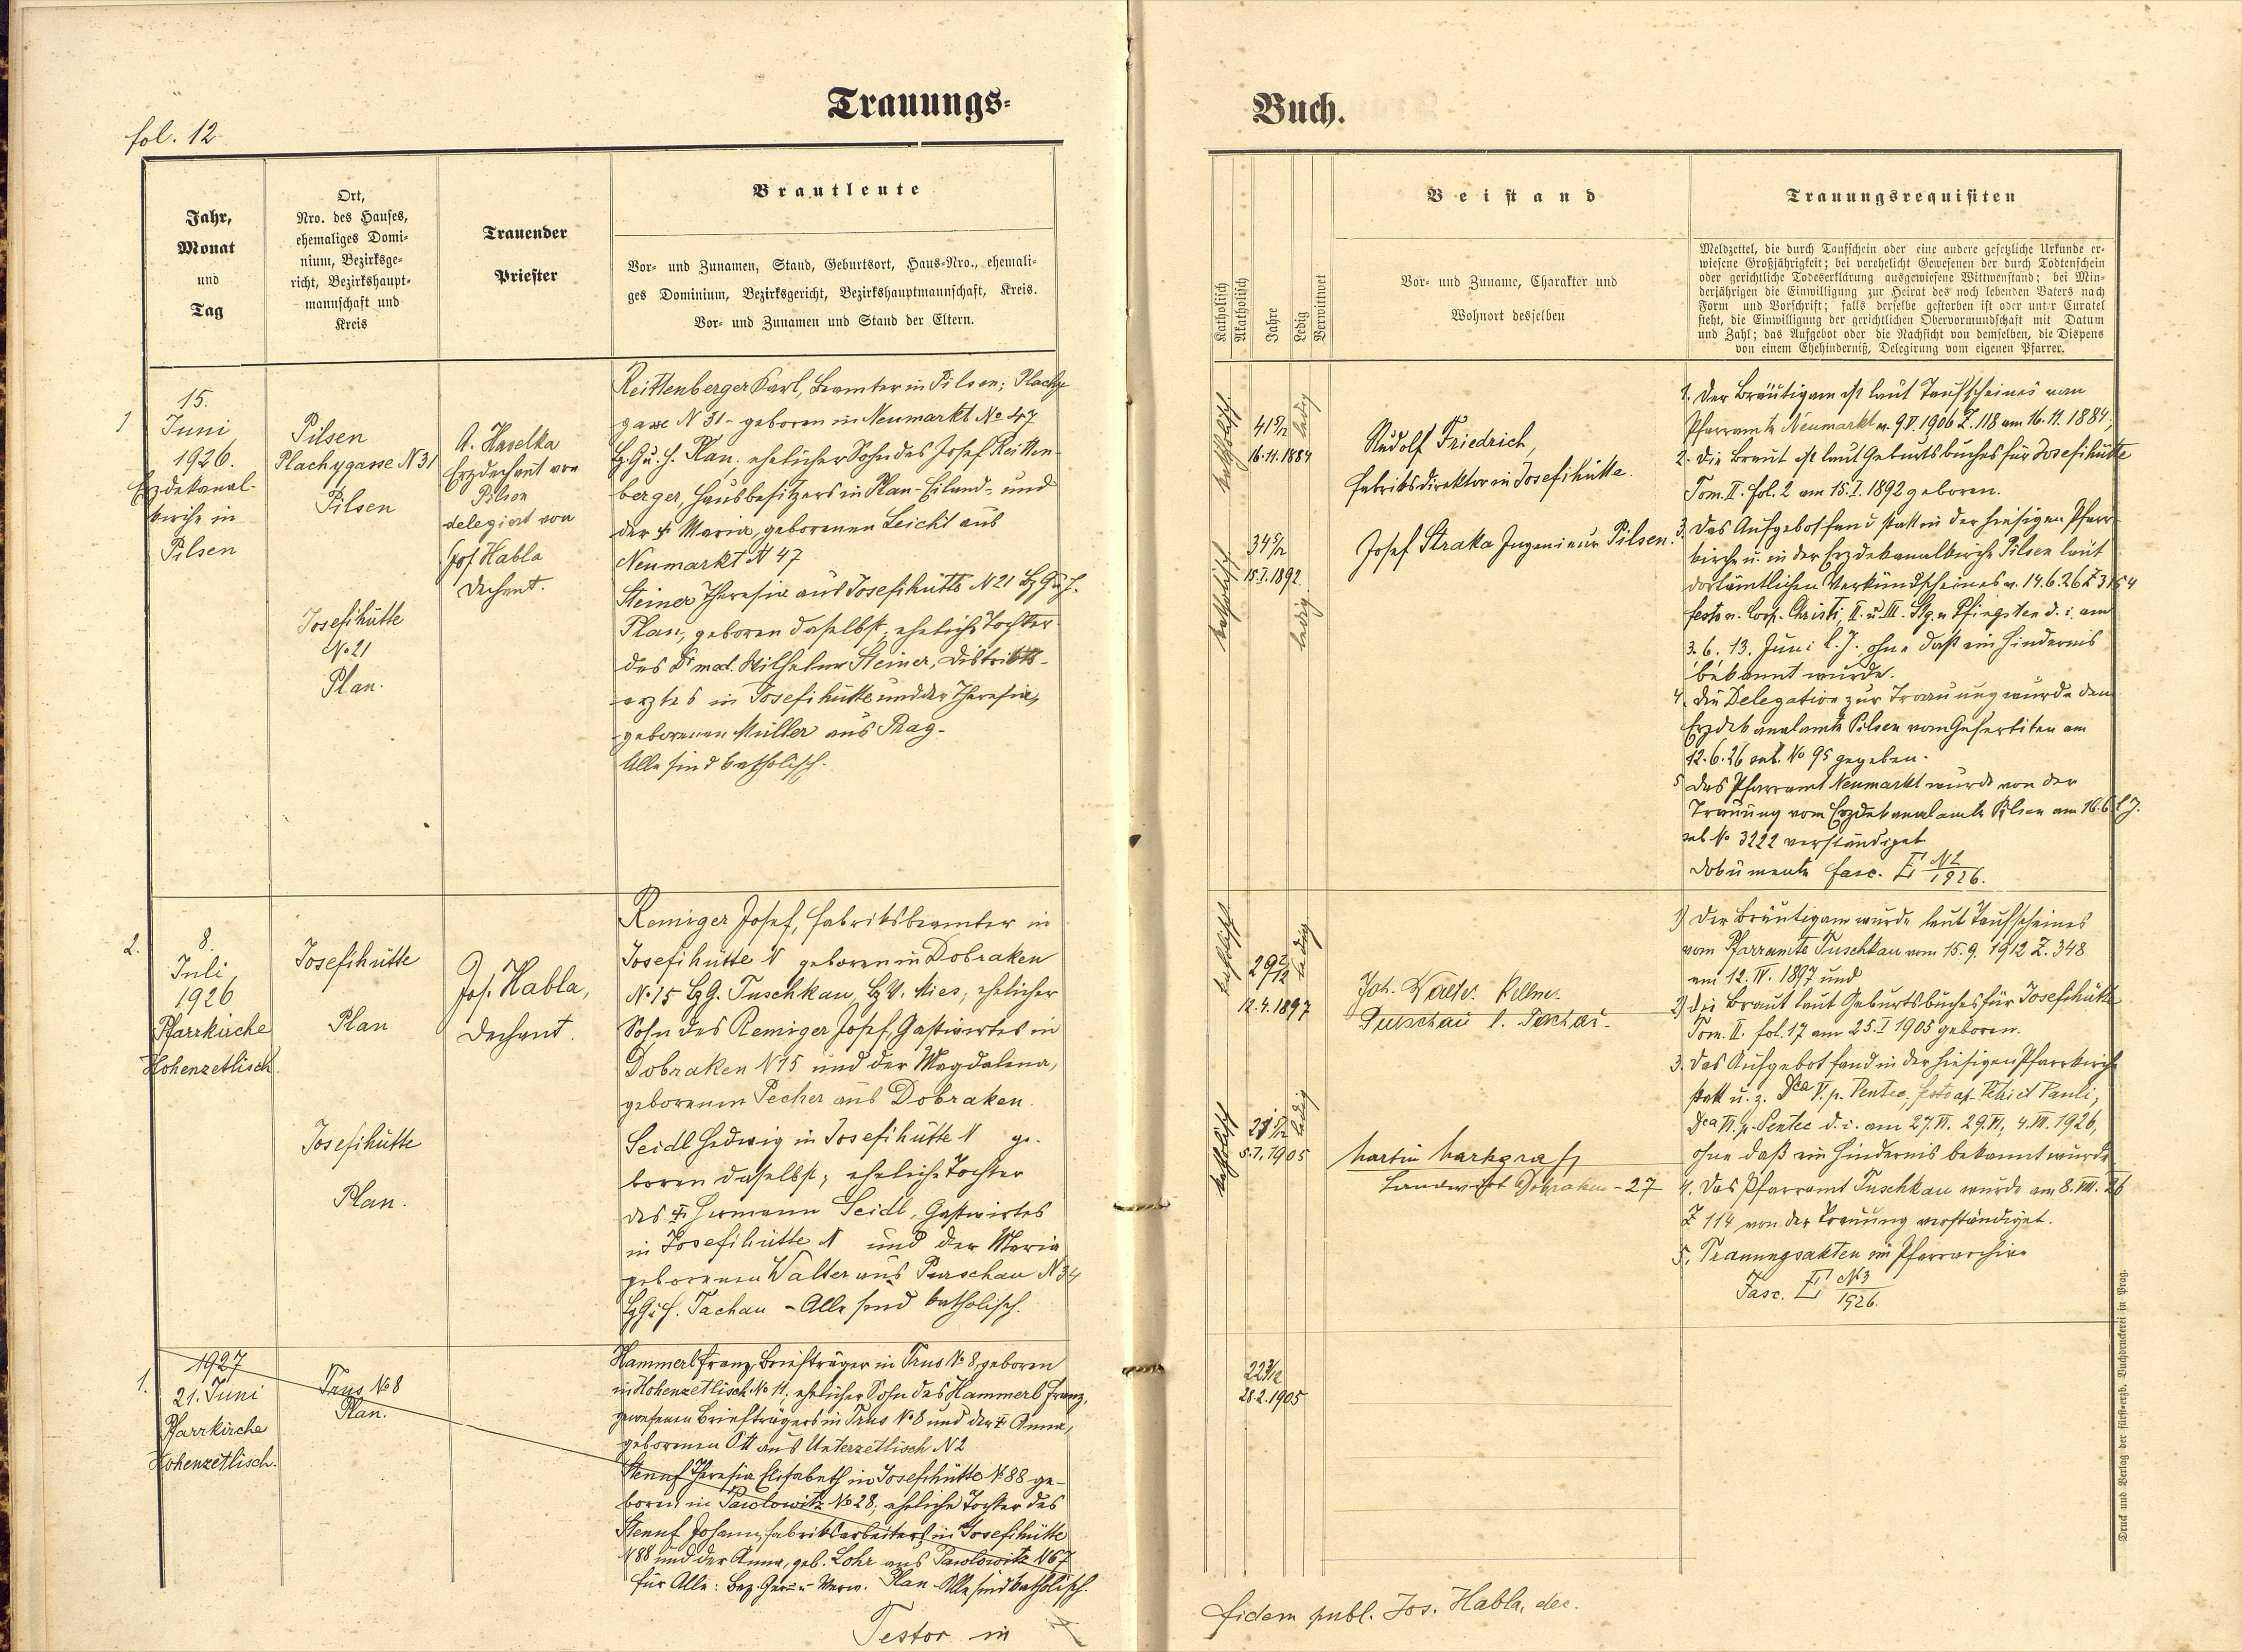 Trauungs-
Buch.
fol. 12
Jahr,
Monat
und
Tag
Ort,
Nro. des Hauses,
ehemaliges Domi-
nium, Bezirksge-
richt, Bezirkshaupt-
mannschaft und
Kreis
Trauender
Priester
Brautleute
Vor- und Zunamen, Stand, Geburtsort, Haus-Nro., ehemali-
ges Dominium, Bezirksgericht, Bezirkshauptmannschaft, Kreis.
Vor- und Zunamen und Stand der Eltern.
Katholisch
Akatholisch
Jahre
Ledig
Verwittwet
Beistand
Vor- und Zuname, Charakter und
Wohnort desselben
Trauungsrequisiten
Meldzettel, die durch Taufschein oder eine andere gesetzliche Urkunde er-
wiesene Großjährigkeit; bei verehelicht Gewesenen der durch Todtenschein
oder gerichtliche Todeserklärung ausgewiesene Wittwenstand; bei Min-
derjährigen die Einwilligung zur Heirat des noch lebenden Vaters nach
Form und Vorschrift; falls derselbe gestorben ist oder unter Curatel
steht, die Einwilligung der gerichtlichen Obervormundschaft mit Datum
und Zahl; das Aufgebot oder die Nachsicht von demselben, die Dispens
von einem Ehehinderniß, Delegirung vom eigenen Pfarrer.
1
15.
Juni
1926.
Erzdekanal-
kirche in
Pilsen
Pilsen
Plachygasse N 31
Pilsen
Josefihütte
No 21
Plan.
A. Havelka
Erzdechant von
Pilsen
delegiert von
Jos. Habla
Dechant.
Reittenberger Karl, Beamter in Pilsen; Plachy
gasse N 31 - geboren in Neumarkt No 47
Bz. G. u. H. Plan, ehelicher Sohn des Josef Reitten-
berger, Hausbesitzers in Plan-Eiland- und
der † Maria, geborenen Leicht aus
Neumarkt N 47
Steiner Theresia aus Josefihütte N 21 Bz G u. H.
Plan, geboren daselbst, eheliche Tochter
des Dr med. Wilhelm Steiner, Distrikts-
arztes in Josefihütte und der Theresia,
geborenen Müller aus Prag-
Alle sind katholisch.
katholisch
41 5/12
16.11.1884
ledig
katholisch
34 5/12
15.I.1892.
ledig
Rudolf Friedrich,
Fabriksdirektor in Josefihütte.
Josef Straka Ingenieur Pilsen.
1. Der Bräutigam ist laut Taufscheines vom
Pfarramte Neumarkt v. 9.V.1906 Z. 118 am 16.11.1884;
2. Die Braut ist laut Geburtsbuches für Josefihütte
Tom. II. fol. 2 am 15.I.1892 geboren.
3. Das Aufgebot fand statt in der hiesigen Pfarr-
kirche u. in der Erzdekanalkirche Pilsen laut
dortämtlichen Verkündscheines v. 14.6.26 Z 3164
festo v. Corp. Christi, II. u. III. Stg. n. Pfingsten d. i. am
3. 6. 13. Juni l. J., ohne daß ein Hindernis
bekannt wurde.
4. Die Delegation zur Trauung wurde dem
Erzdekanalamte Pilsen vom Gefertigten am
12.6.26 sub. No 95 gegeben.
5 Das Pfarramt Neumarkt wurde von der
Trauung vom Erzdekanalamte Pilsen am 16.6. l. J.
sub No 3222 verständiget
Dokumente fasc. E N2/1926.
2.
8.
Juli
1926
Pfarrkirche
Hohenzetlisch.
Josefihütte
Plan
Josefihütte
Plan.
Jos. Habla,
Dechant.
Remiger Josef, Fabriksbeamter in
Josefihütte N geboren in Dobraken
No 15 Bz G. Tuschkau, Bz V. Mies, ehelicher
Sohn des Remiger Josef, Gastwirtes in
Dobraken N 15 und der Magdalena,
geborenen Pecher aus Dobraken.
Seidl Hedwig in Josefihütte N ge-
boren daselbst; eheliche Tochter
des † Hermann Seidl, Gastwirtes
in Josefihütte N und der Maria
geborenen Walter aus Purschau N 34
Bz G u. H. Tachau - Alle sind katholisch.
katholisch
29 2/12
12.4.1897
ledig
katholisch
21 5/12
5.I.1905
ledig
Joh. Walter
Purschau
Martin Markgraf
Landwirt Dobraken - 27
1) Der Bräutigam wurde laut Taufscheines
vom Pfarramte Tuschkau vom 15.9.1912 Z. 348
am 12.IV.1897 und
2) die Braut laut Geburtsbuches für Josefihütte
Tom. II. fol. 17 am 25.I 1905 geboren.
3. Das Aufgebot fand in der hiesigen Pfarrkirche
statt u. z. Dca V. p. Pentec, festo ap. Petri et Pauli,
Dca VI. p. Pentec d. i. am 27.VI. 29.VI, 4.VII.1926,
ohne daß ein Hindernis bekannt wurde
4. Das Pfarramt Tuschkau wurde am 8.VII.26
Z 114 von der Trauung verständiget.
5. Trauungsakten im Pfarrarchive
Fasc. E N3/1926.
1.
1927
21. Juni
Pfarrkirche
Hohenzetlisch.
Trus No 8
Plan.
Hammerl Franz, Briefträger in Trus No 8, geboren
in Hohenzetlisch No 11, ehelicher Sohn des Hammerl Franz,
gewesenen Briefträgers in Trus No 8 und der † Anna,
geborenen Ott aus Unterzetlisch N 2
Theresia Elisabeth in Josefihütte N 88 ge-
boren in Pawlowitz No 28, eheliche Tochter des
Johann, Fabriksarbeiters in Josefihütte
N 88 und der Anna, geb. Lohr aus Pawlowitz N 67
für Alle: Bez. Ger. u. Verw. Plan. Alle sind katholisch.
28.2.1905
Testor in
fidem publ. Jos. Habla, dec.
Druck und Verlag der fürst-erzb. Buchdruckerei in Prag.